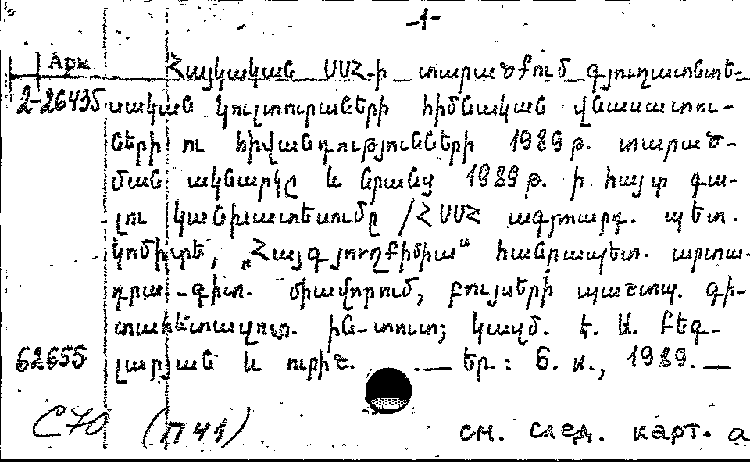 -1-
Арм
Հայկական ՍՍՀ-ի տարածքում գյուղատնտե-
2-26435 սական կուլտուրաների հիմնական վնասատու-
ների ու հիվանդությունների 1989 թ. տարած-
ման ակնարկը և նրանց 1989 թ. ի հայտ գա-
լու կանխատեսումը / ՀՍՍՀ ագրոարդ. պետ.
կոմիտե, „Հայգյուղքիմիա“ հանրապետ. արտա-
դրա-գիտ. միավորում, բույսերի պաշտպ. գի-
տահետազոտ. ին-տուտ; կազմ. Է. Ա. Բեգ-
62655 լարյան և ուրիշ. — Եր.: Բ. и., 1989. —
C70 (П41) см. след. карт. а